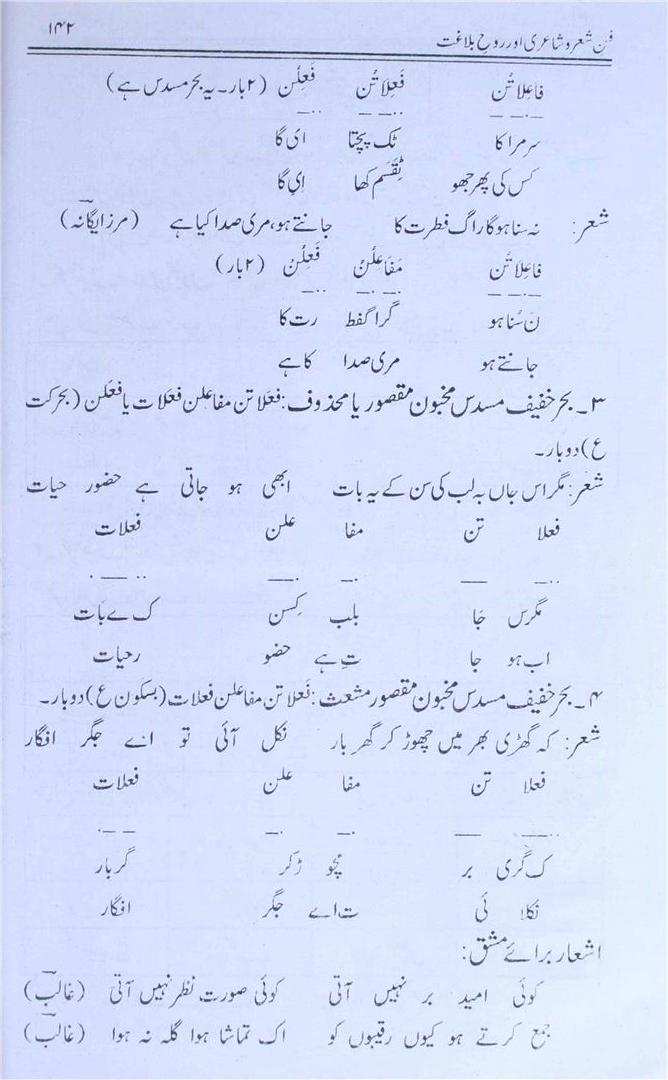 فن شعر و شاعری اور روح بلاغت ۱۴۲
فاعِلاتُن فَعِلاتُن فَعِلُن (۲ بار۔ یہ بحر مسدس ہے)
سر مرا کا ٹک پچتا ای گا
کس کی پھر جھو ٹِقَسَم کھا اِی گا
شعر: نہ سنا ہوگا راگ فطرت کا جانتے ہو، مری صدا کیا ہے (مرزا یگانہ)
فاعِلاتُن مَفَاعلُن فَعِلُن (۲ بار)
نَ سُنا ہو گرا گفط رت کا
جانتے ہو مری صدا کا ہے
۳۔ بحر خفیف مسدس مخبون مقصور یا محذوف: فعلاتن مفاعلن فعلات یا فعلن (بحرکت
ع) دو بار۔
شعر: مگر اس جاں بہ لب کی سن کے یہ بات ابھی ہو جاتی ہے حضور حیات
فعلا تن مفا علن فعلات
مگرس جَا بلب کِسن ک ے بات
اب ہو جا تِ ہے حضو رحیات
۴۔ بحر خفیف مسدس مخبون مقصور مشعث: فعلاتن مفاعلن فعلات (بسکون ع) دو بار۔
شعر: کہ گھڑی بھر میں چھوڑ کر گھر بار نکل آئی تو اے جگر افگار
فعلا تن مفا علن فعلات
ک گری بر مچو ڑکر گربار
نکلا ئی ت اے جگر افگار
اشعار برائے مشق:
کوئی امید بر نہیں آتی کوئی صورت نظر نہیں آتی (غالب)
جمع کرتے ہو کیوں رقیبوں کو اک تماشا ہوا گلہ نہ ہوا (غالب)